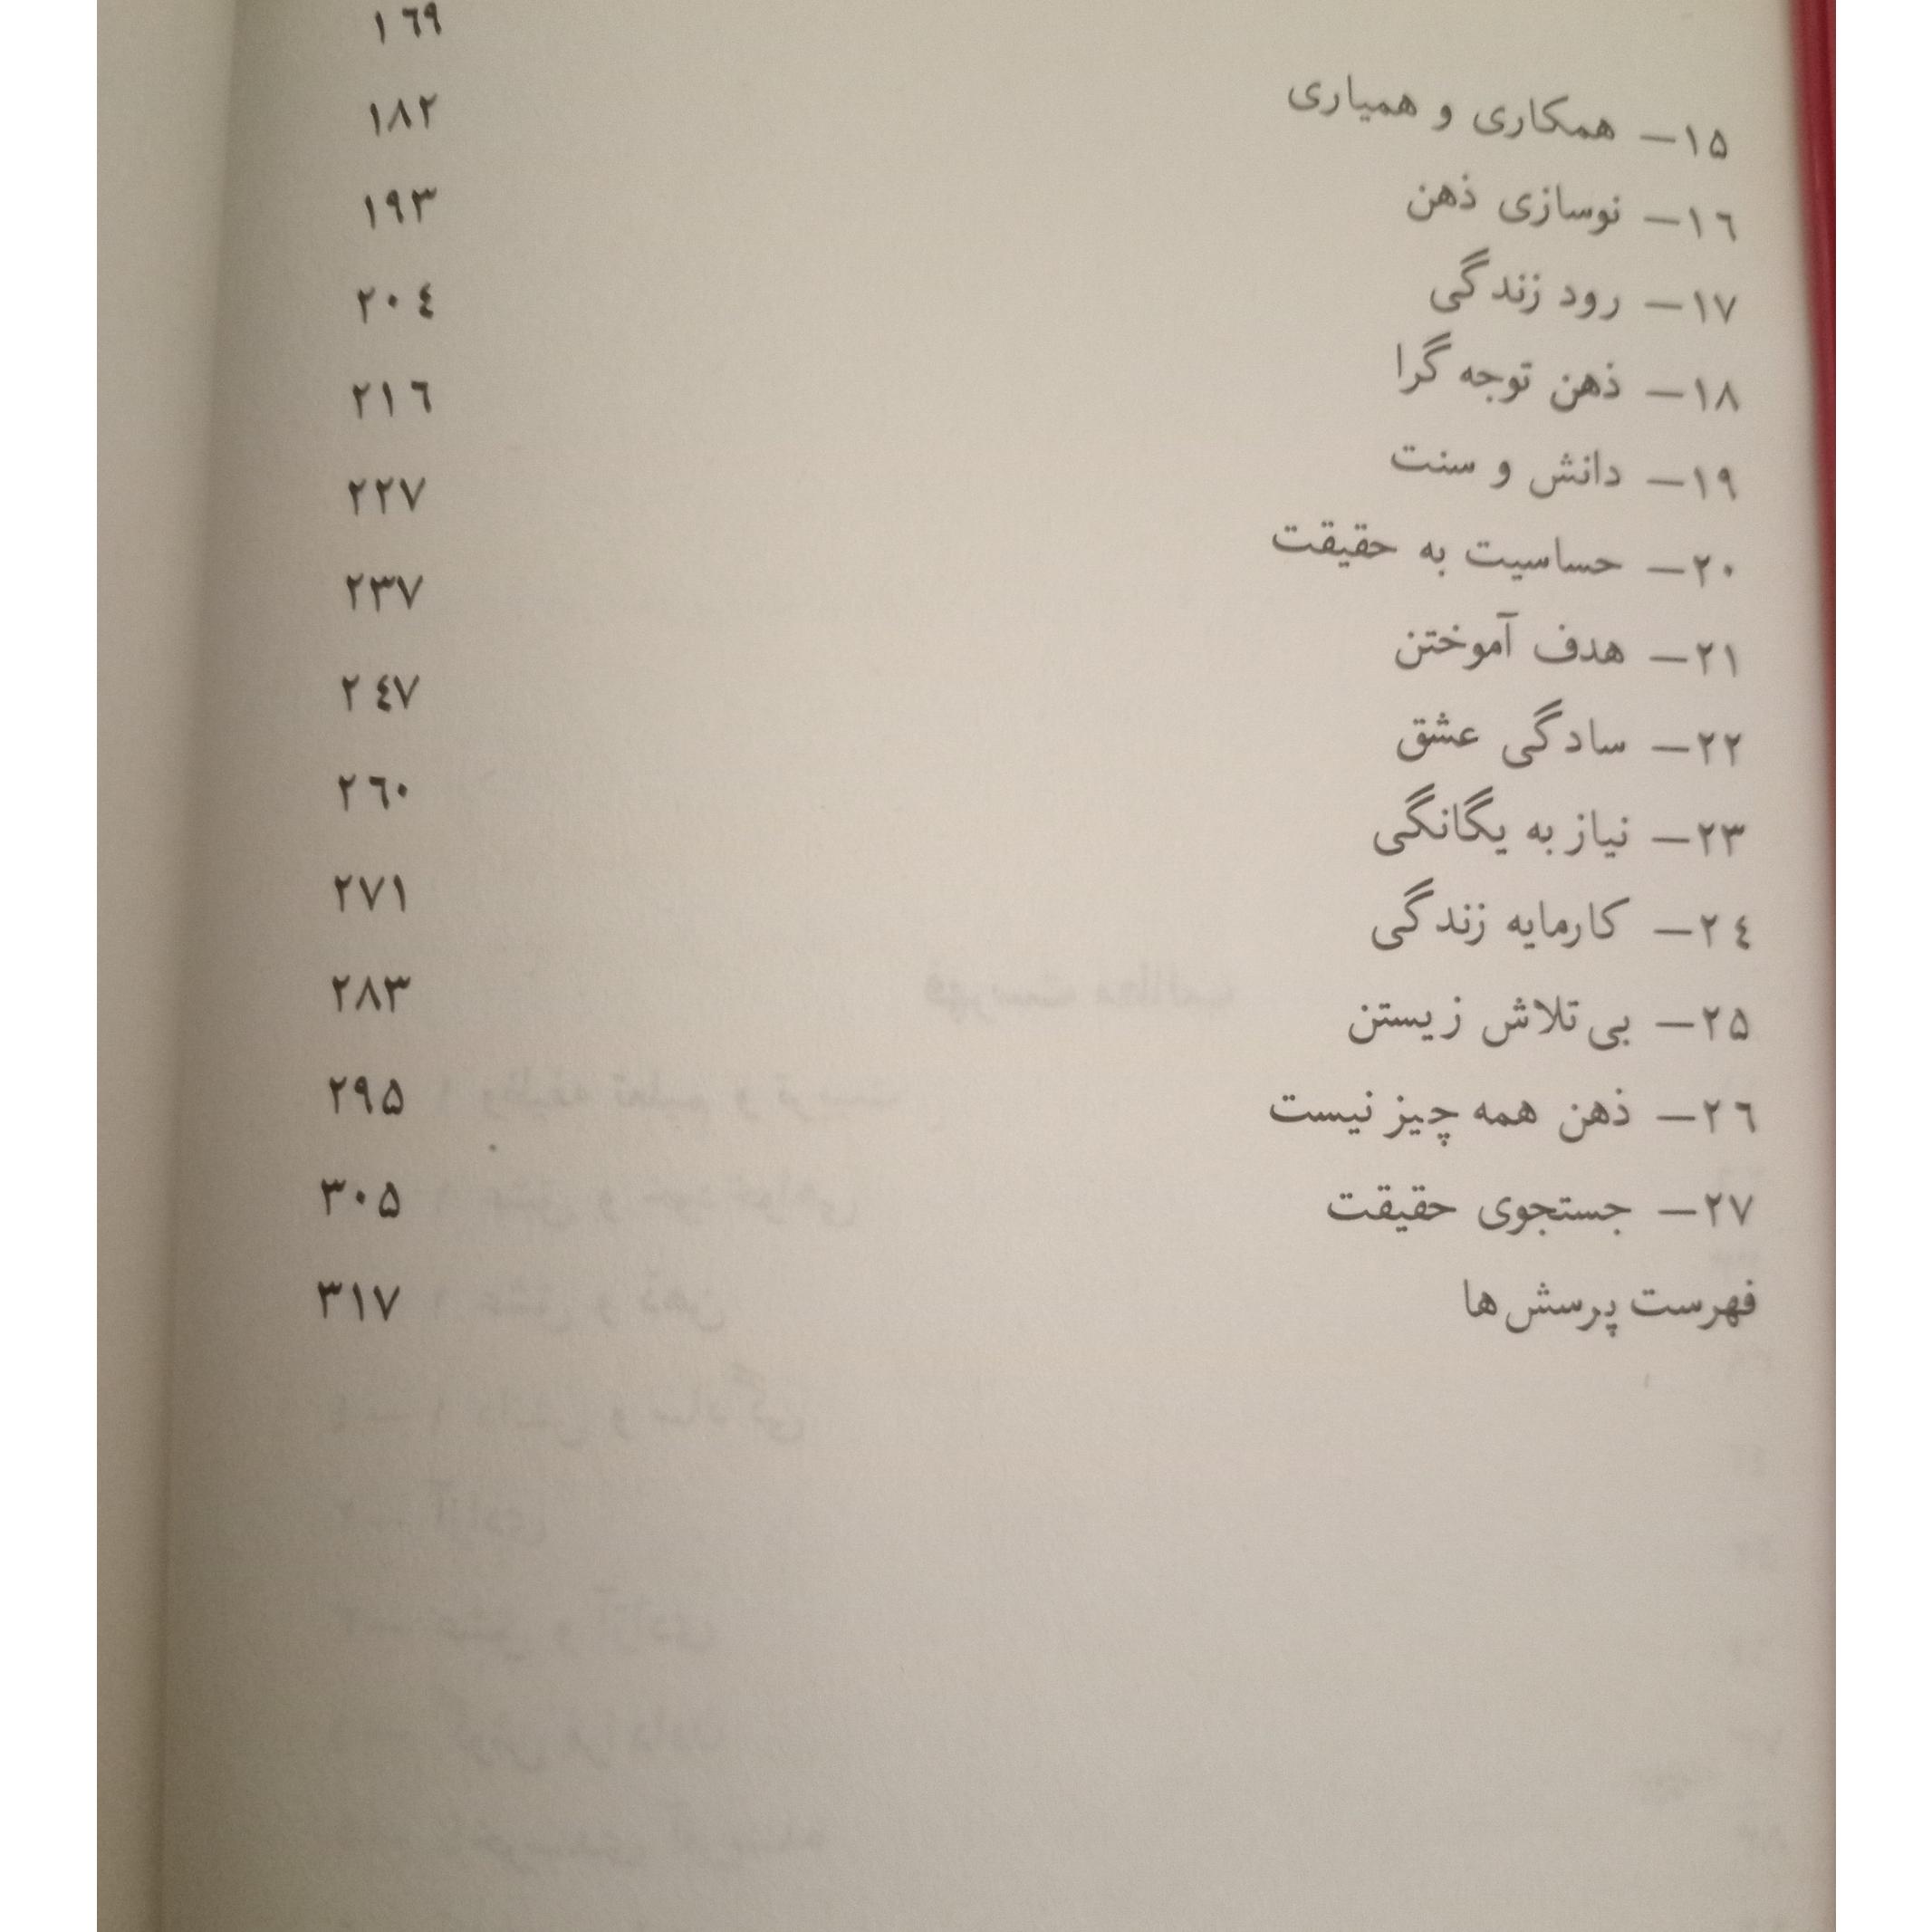 ۱۵— همکاری و همیاری ۱٦۹
۱٦— نوسازی ذهن ۱۸۲
۱۷— رود زندگی ۱۹۳
۱۸— ذهن توجه گرا ۲۰٤
۱۹— دانش و سنت ۲۱٦
۲۰— حساسیت به حقیقت ۲۲۷
۲۱— هدف آموختن ۲۳۷
۲۲— سادگی عشق ۲٤۷
۲۳— نیاز به یگانگی ۲٦۰
۲٤— کارمایه زندگی ۲۷۱
۲۵— بی‌تلاش زیستن ۲۸۳
۲٦— ذهن همه چیز نیست ۲۹۵
۲۷— جستجوی حقیقت ۳۰۵
فهرست پرسش‌ها ۳۱۷